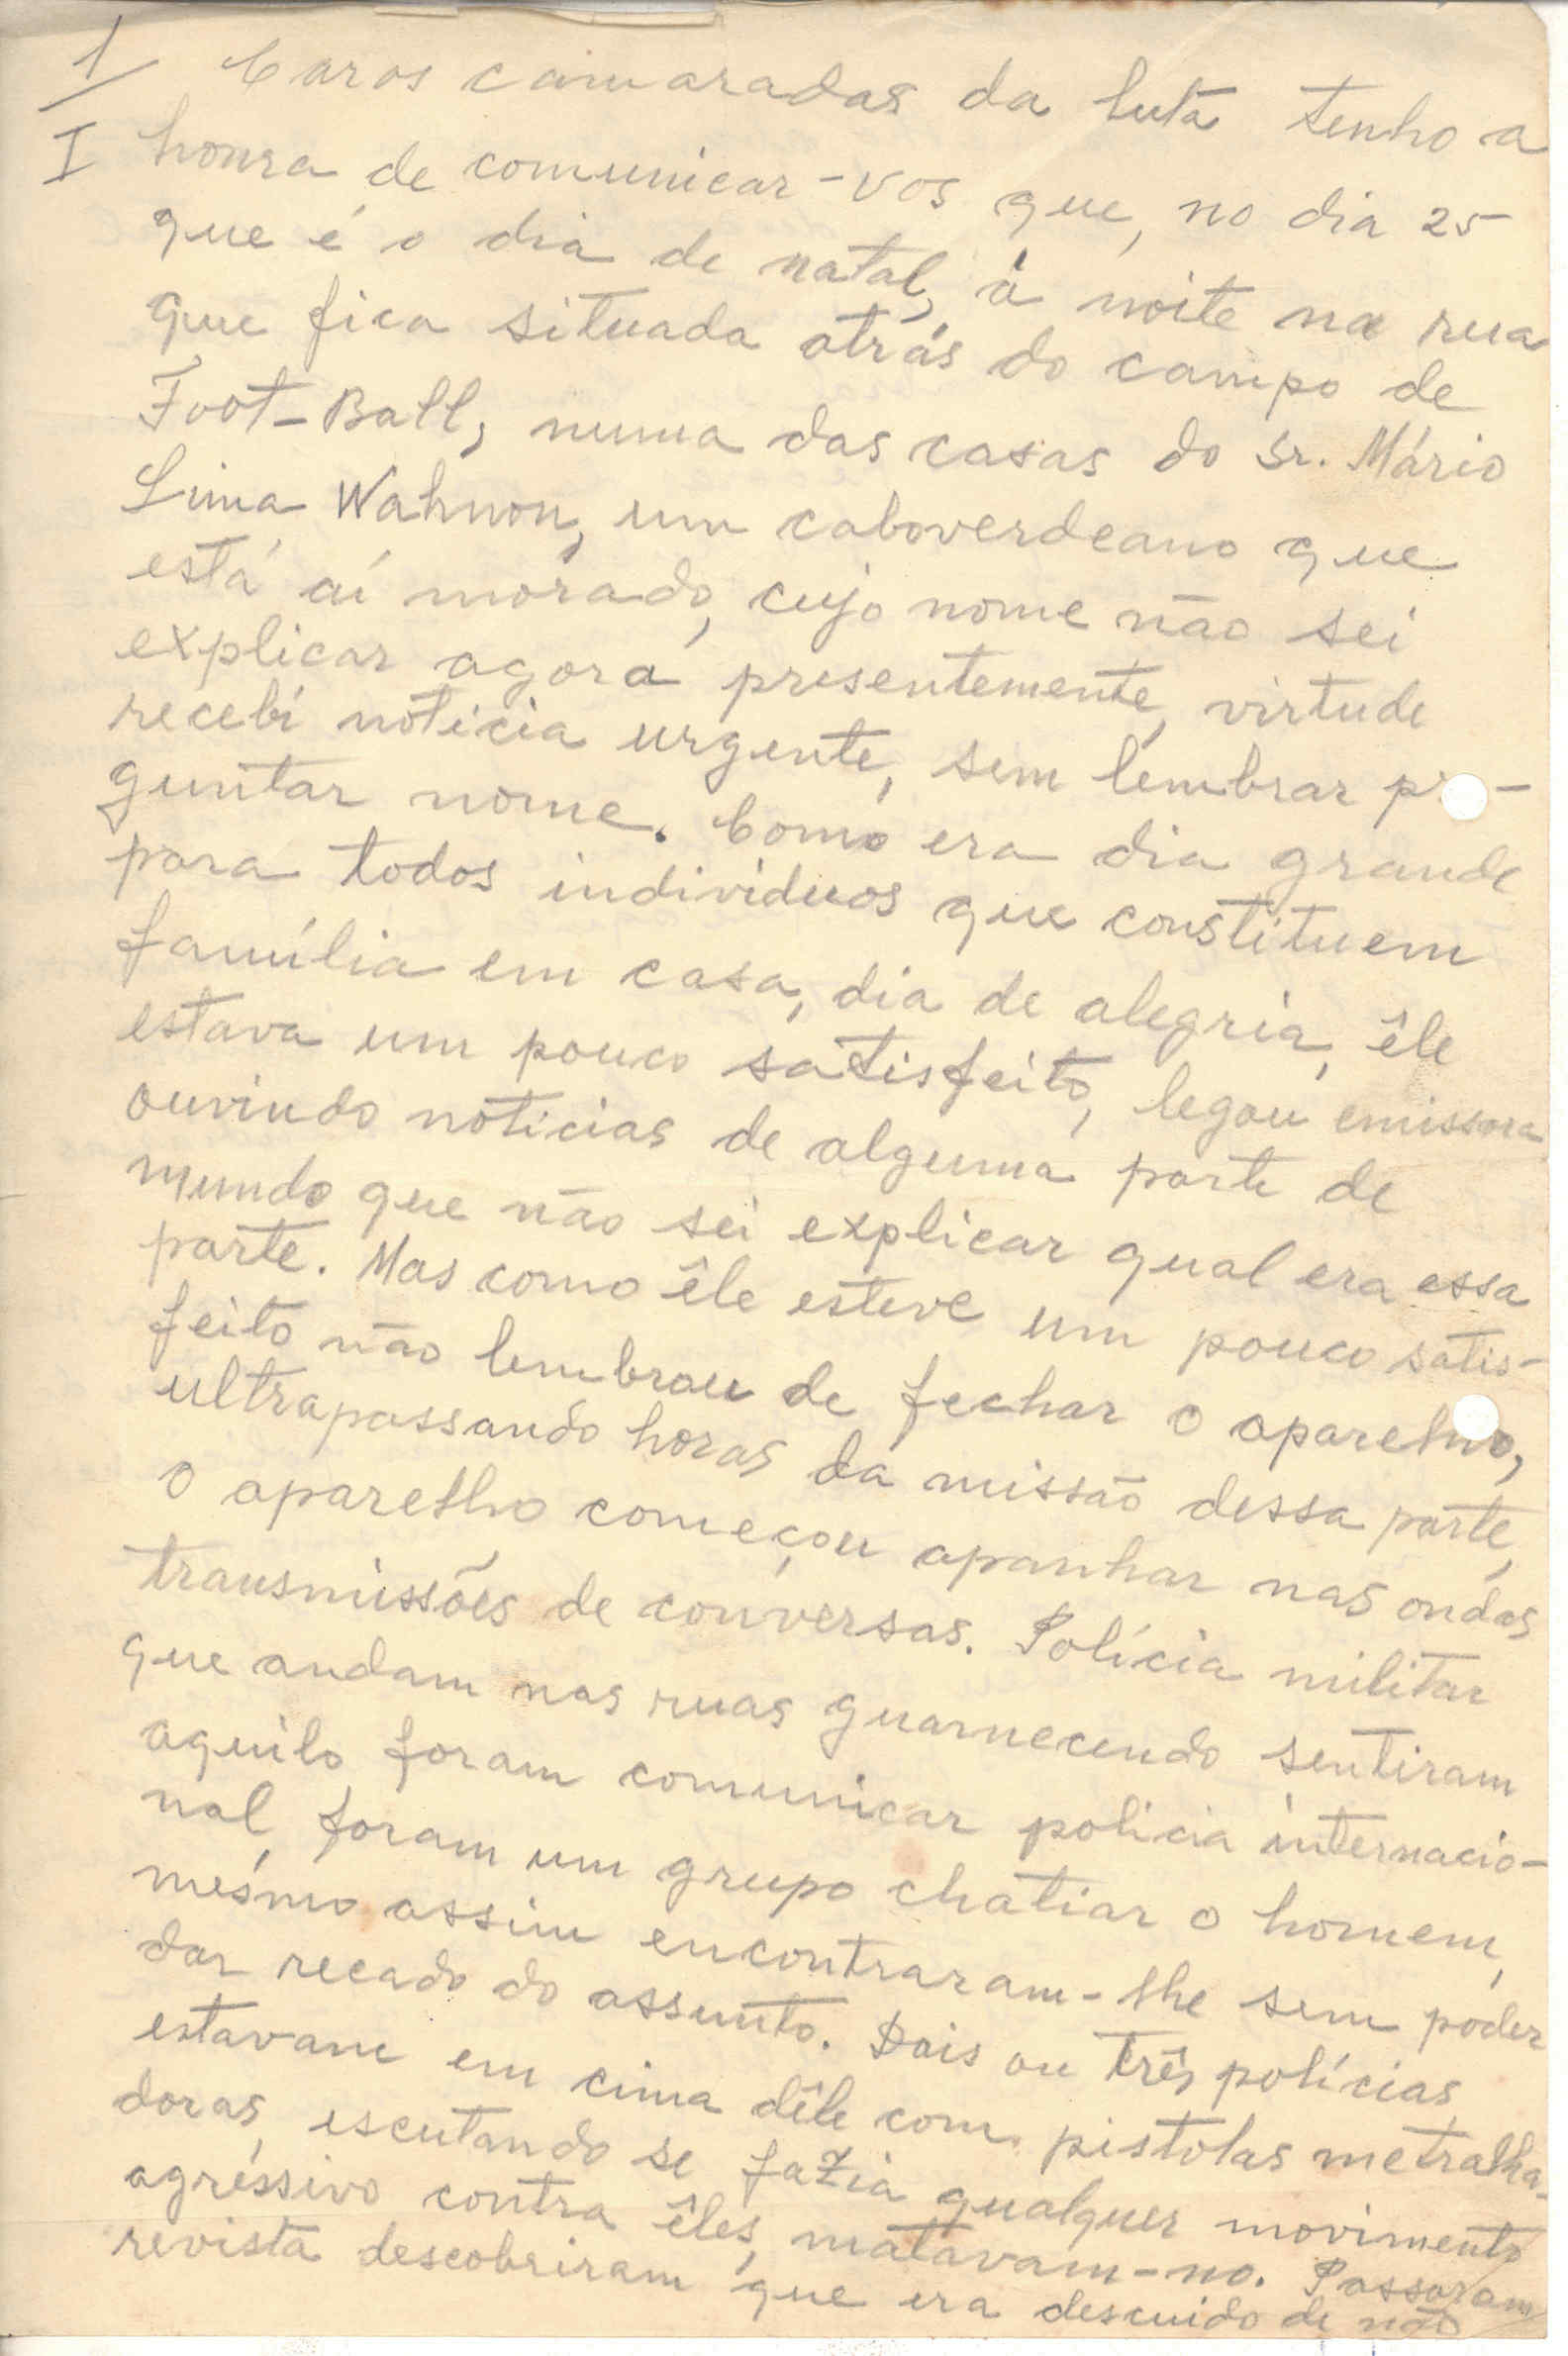 1/ Caros camaradas da luta tenho a
I honra de comunicar-vos que, no dia 25
que é o dia de natal, à noite na rua
que fica situada atrás do campo de
Foot-Ball, numa das casas do Sr. Mário
Lima Wahnon, um caboverdeano que
está aí morado, cujo nome não sei
explicar agora presentemente, virtude
recebí notícia urgente, sem lembrar pr-
guntar nome. Como era dia grande
para todos indivíduos que constituem
família em casa, dia de alegria, êle
estava um pouco satisfeito, legou emissora
ouvindo notícias de alguma parte de
mundo que não sei explicar qual era essa
parte. Mas como êle esteve um pouco satis-
feito não lembrou de fechar o aparelho,
ultrapassando horas da missão dessa parte,
o aparelho começou apanhar nas ondas
transmissões de conversas. Polícia militar
que andam nas ruas guarnecendo sentiram
aquilo, foram comunicar polícia internacio-
nal, foram um grupo chatiar o homem,
mesmo assim encontraram-lhe sem poder
dar recado do assunto. Dois ou três polícias
estavam em cima dêle com pistolas metralha-
doras, escutando se fazia qualquer movimento
agréssivo contra êles, matavam-no. Passaram
revista descobriram que era descuido de não